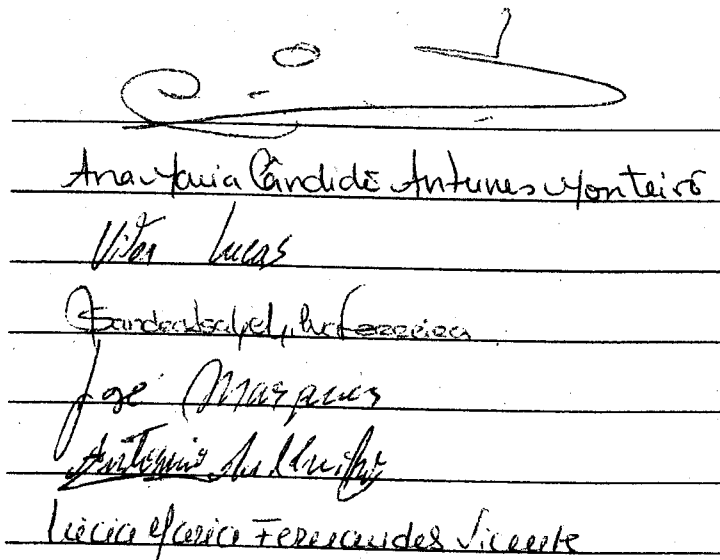 Ana Maria Cândida Antunes Monteiro
Vitor Lucas
Sandra Isabel Ferreira
José Marques
António
Lúcia Maria Fernandes Vicente